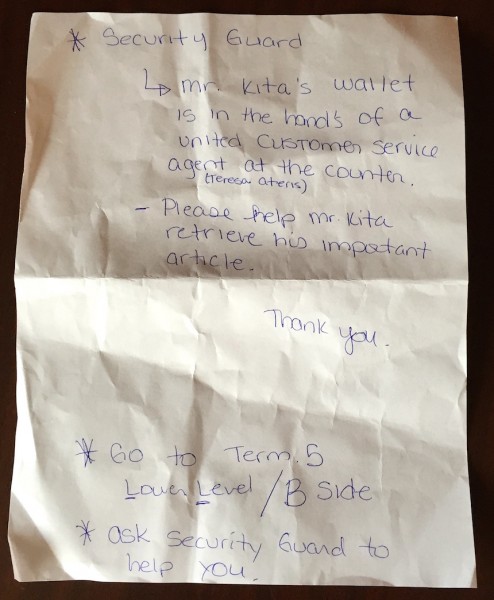 * Security Guard
↳ mr. Kita's wallet
is in the hands of a
united customer service
agent at the counter.
(Teresa
- Please help mr. Kita
retrieve his important
article.
Thank you.
* Go to Term. 5
Lower Level / B Side
* ask Security Guard to
help you.